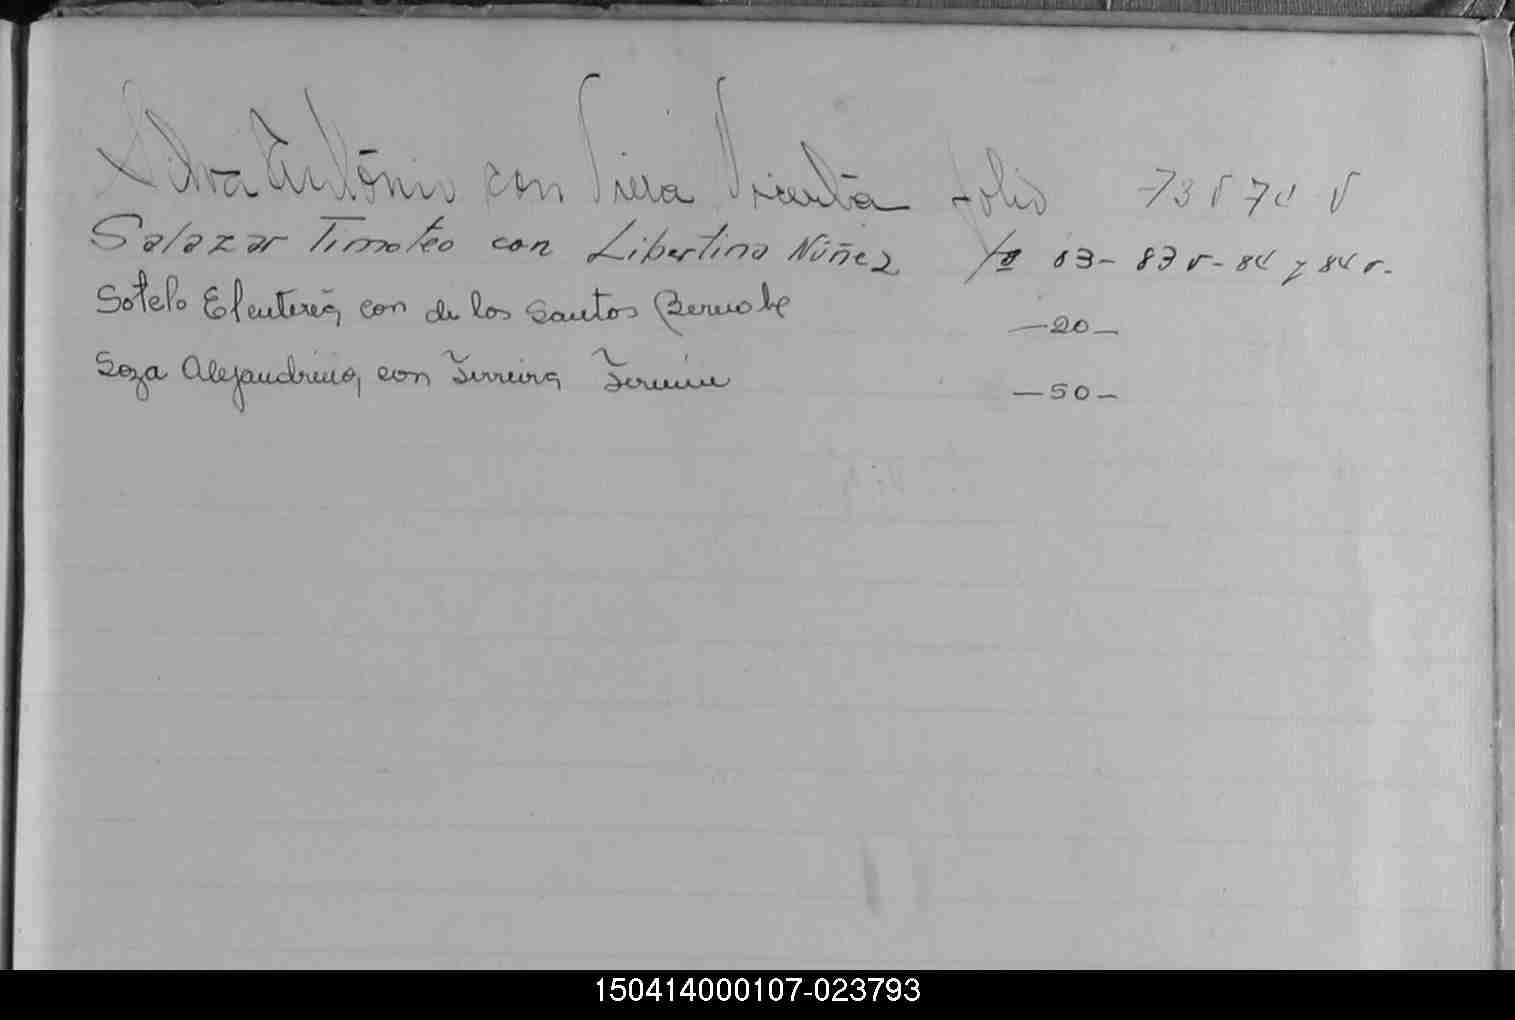 Silva António con Viera Vicenta folio 73 v 74 v
Salazar Timoteo con Libertina Núñez fº 83 - 83 v - 84 y 84 v.
Sotelo Eleuteria, con de los Santos Bernabe — 20 —
Soza Alejandrina, con Ferreira Fermin — 50 —
150414000107-023793